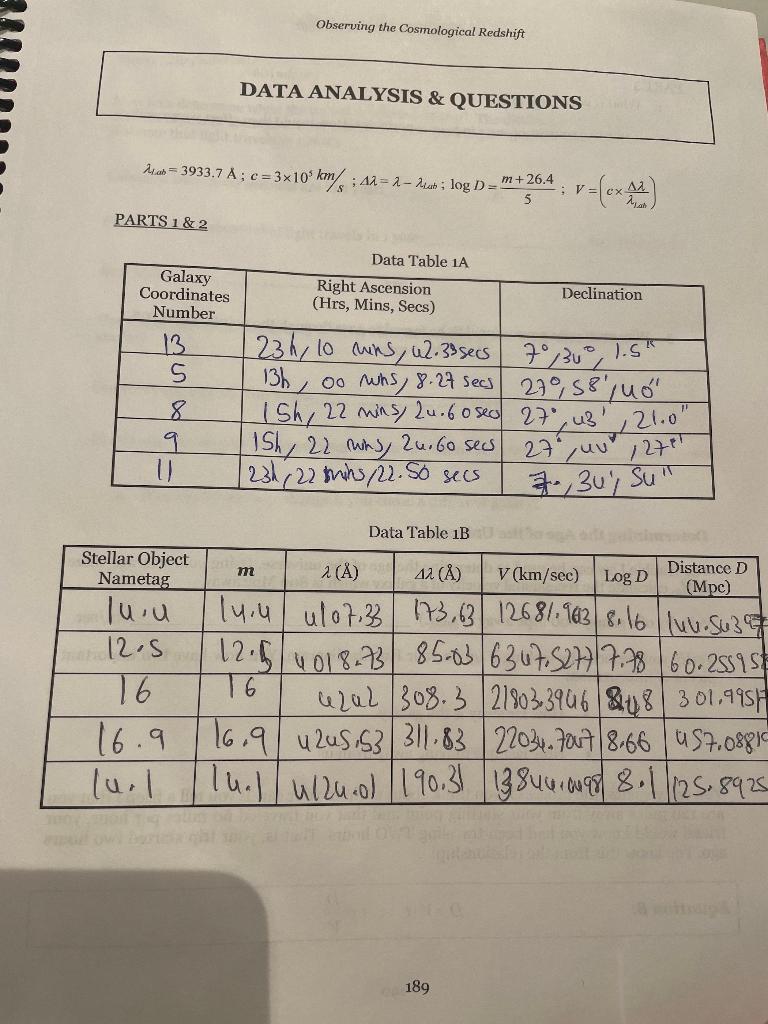 Observing the Cosmological Redshift
DATA ANALYSIS & QUESTIONS
λLab = 3933.7 Å ; c = 3×10⁵ km/s ; Δλ = λ − λLab ; log D = (m + 26.4)/5 ; V = (c × Δλ/λLab)
PARTS 1 & 2
Data Table 1A
Galaxy Coordinates Number Right Ascension (Hrs, Mins, Secs) Declination
13 23h, 10 mins, 42.39secs 7°, 34°, 1.5"
5 13h, 00 mins, 8.27 secs 27°, 58', 40"
8 15h, 22 mins, 24.60 secs 27°, 43', 21.0"
9 15h, 22 mins, 24.60 secs 27°, 44', 27"
11 23h, 22 mins, 22.50 secs 34', 54"
Data Table 1B
Stellar Object Nametag m λ (Å) Δλ (Å) V (km/sec) Log D Distance D (Mpc)
14.4 14.4 4107.33 173.63 8.16 144.5439
12.5 12.5 4018.73 85.03 6347.5277 7.78 60.25595
16 16 4242 308.3 21803.3946 8.48 301.9951
16.9 16.9 4245.53 311.83 22034.7047 8.66 457.0881
14.1 14.1 4124.01 190.31 13844.0498 8.1 125.8925
189